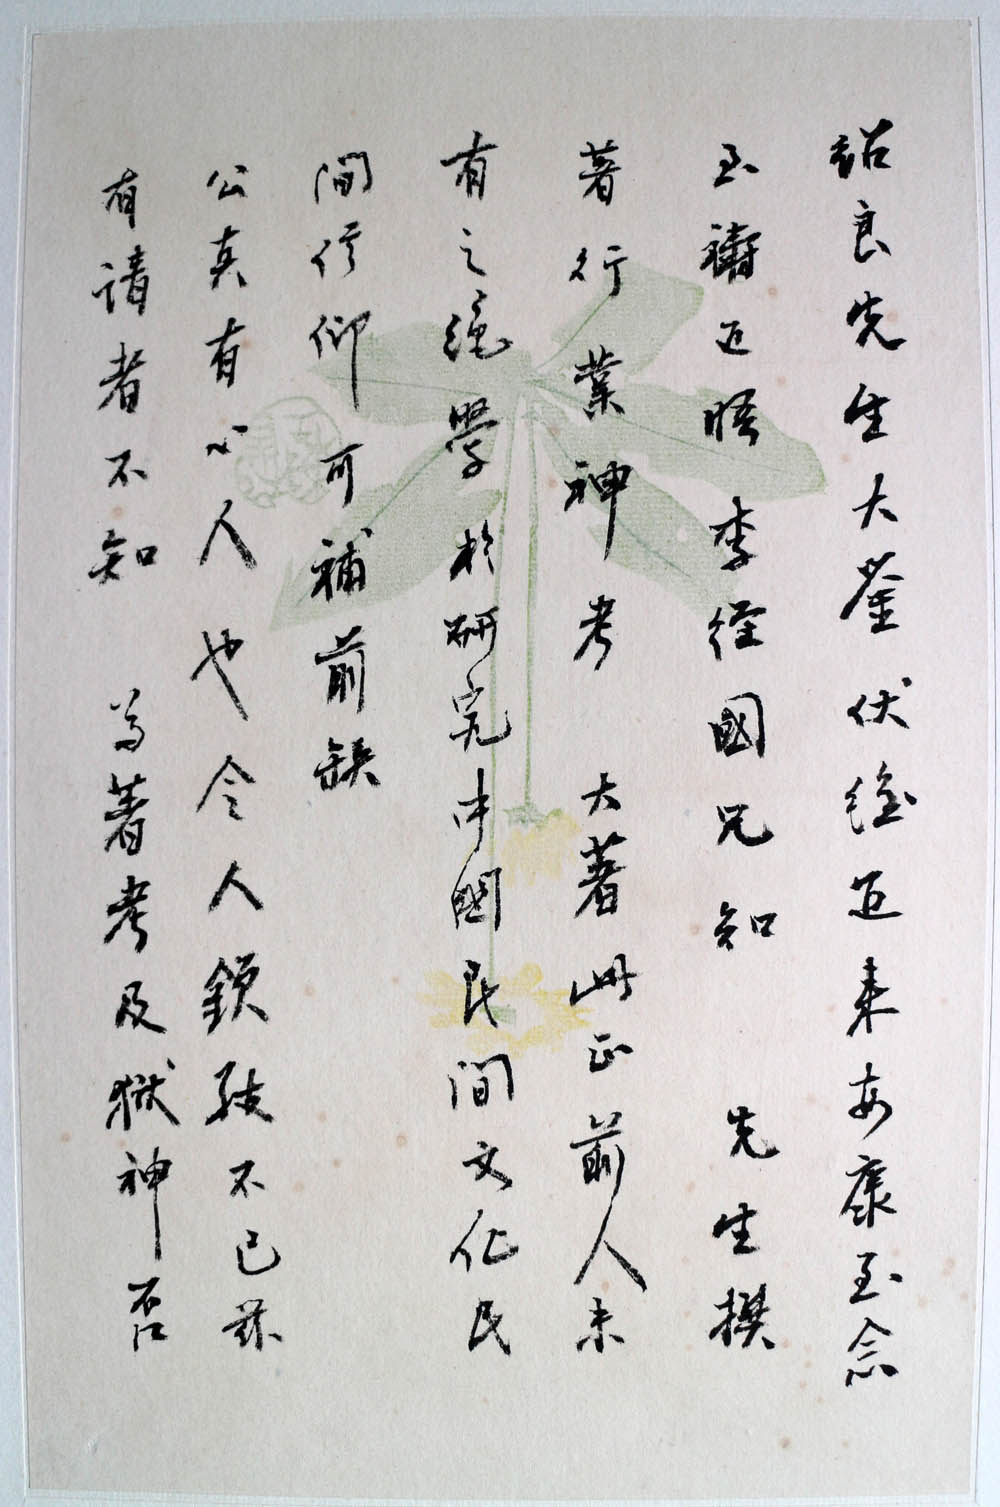 紹良先生大鑒伏維近來安康至念
至禱近晤李經國兄知 先生撰
著行業神考 大著此正前人未
有之絕學於研究中國民間文化民
間信仰可補前缺
公真有心人也令人欽敬不已茲
有請者不知 尊著考及獄神否